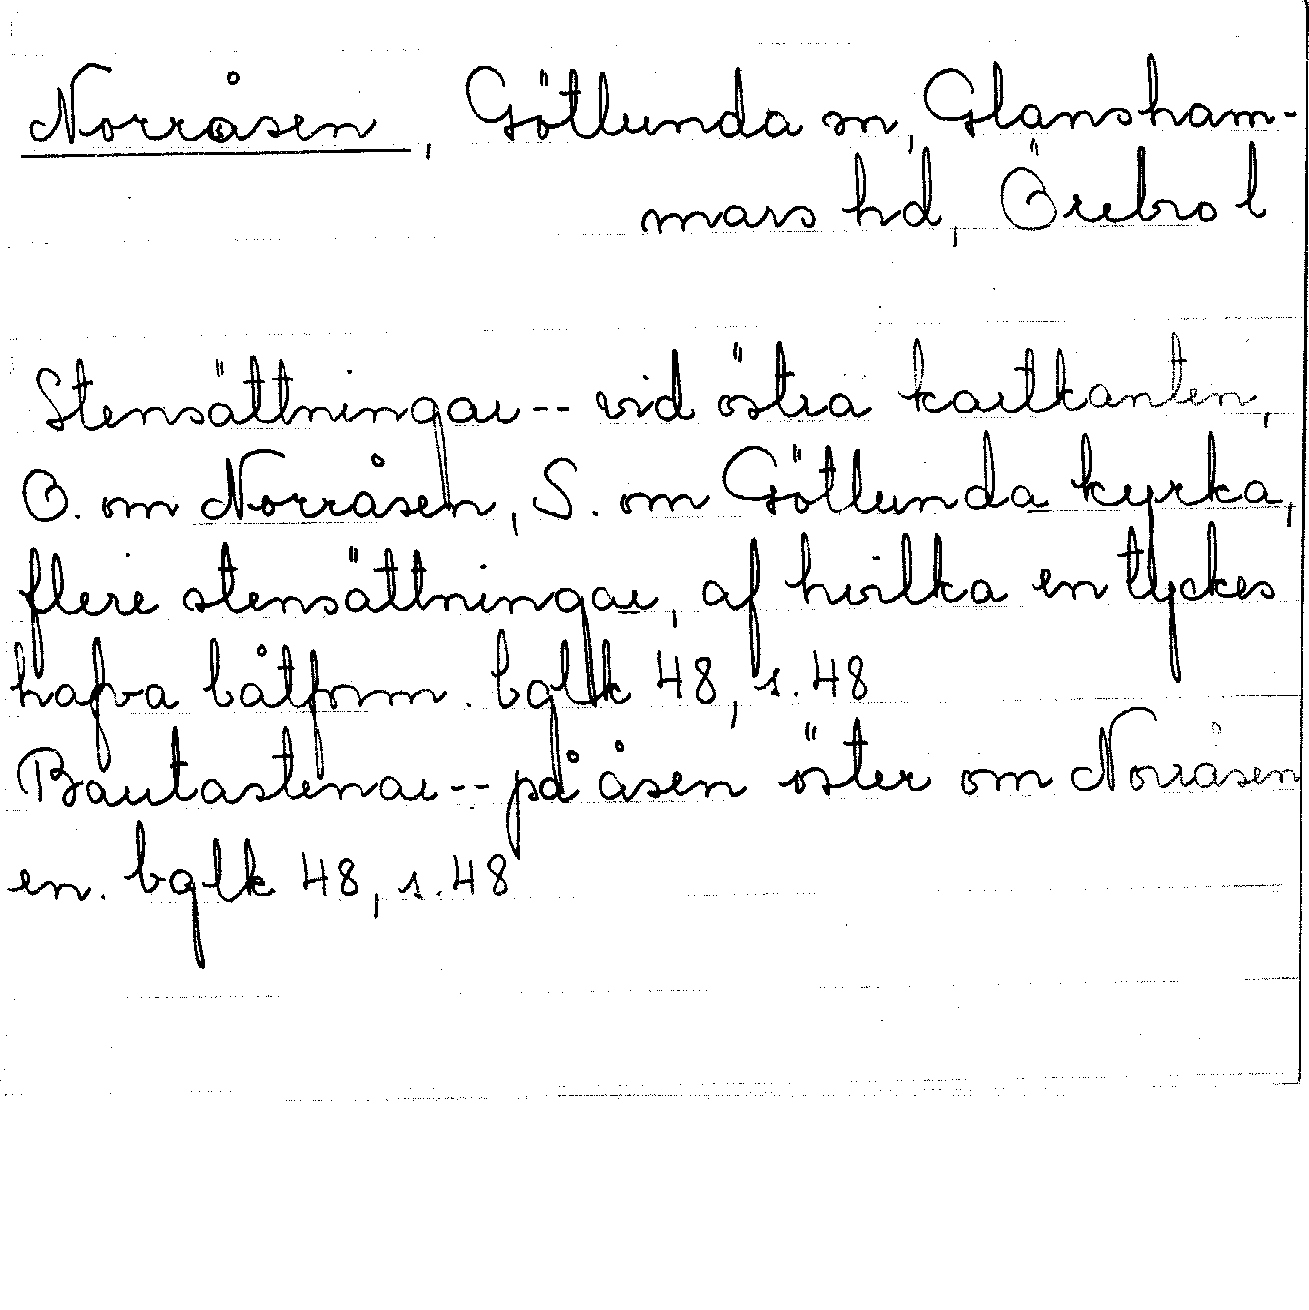 Norråsen, Götlunda sn, Glansham-
mars hd, Örebro l
Stensättningar -- vid östra kartkanten,
O. om Norråsen, S. om Götlunda kyrka,
flere stensättningar, af hvilka en tyckes
hafva båtform. bglk 48, s. 48
Bautastenar -- på åsen öster om Norråsen
en. bglk 48, s. 48